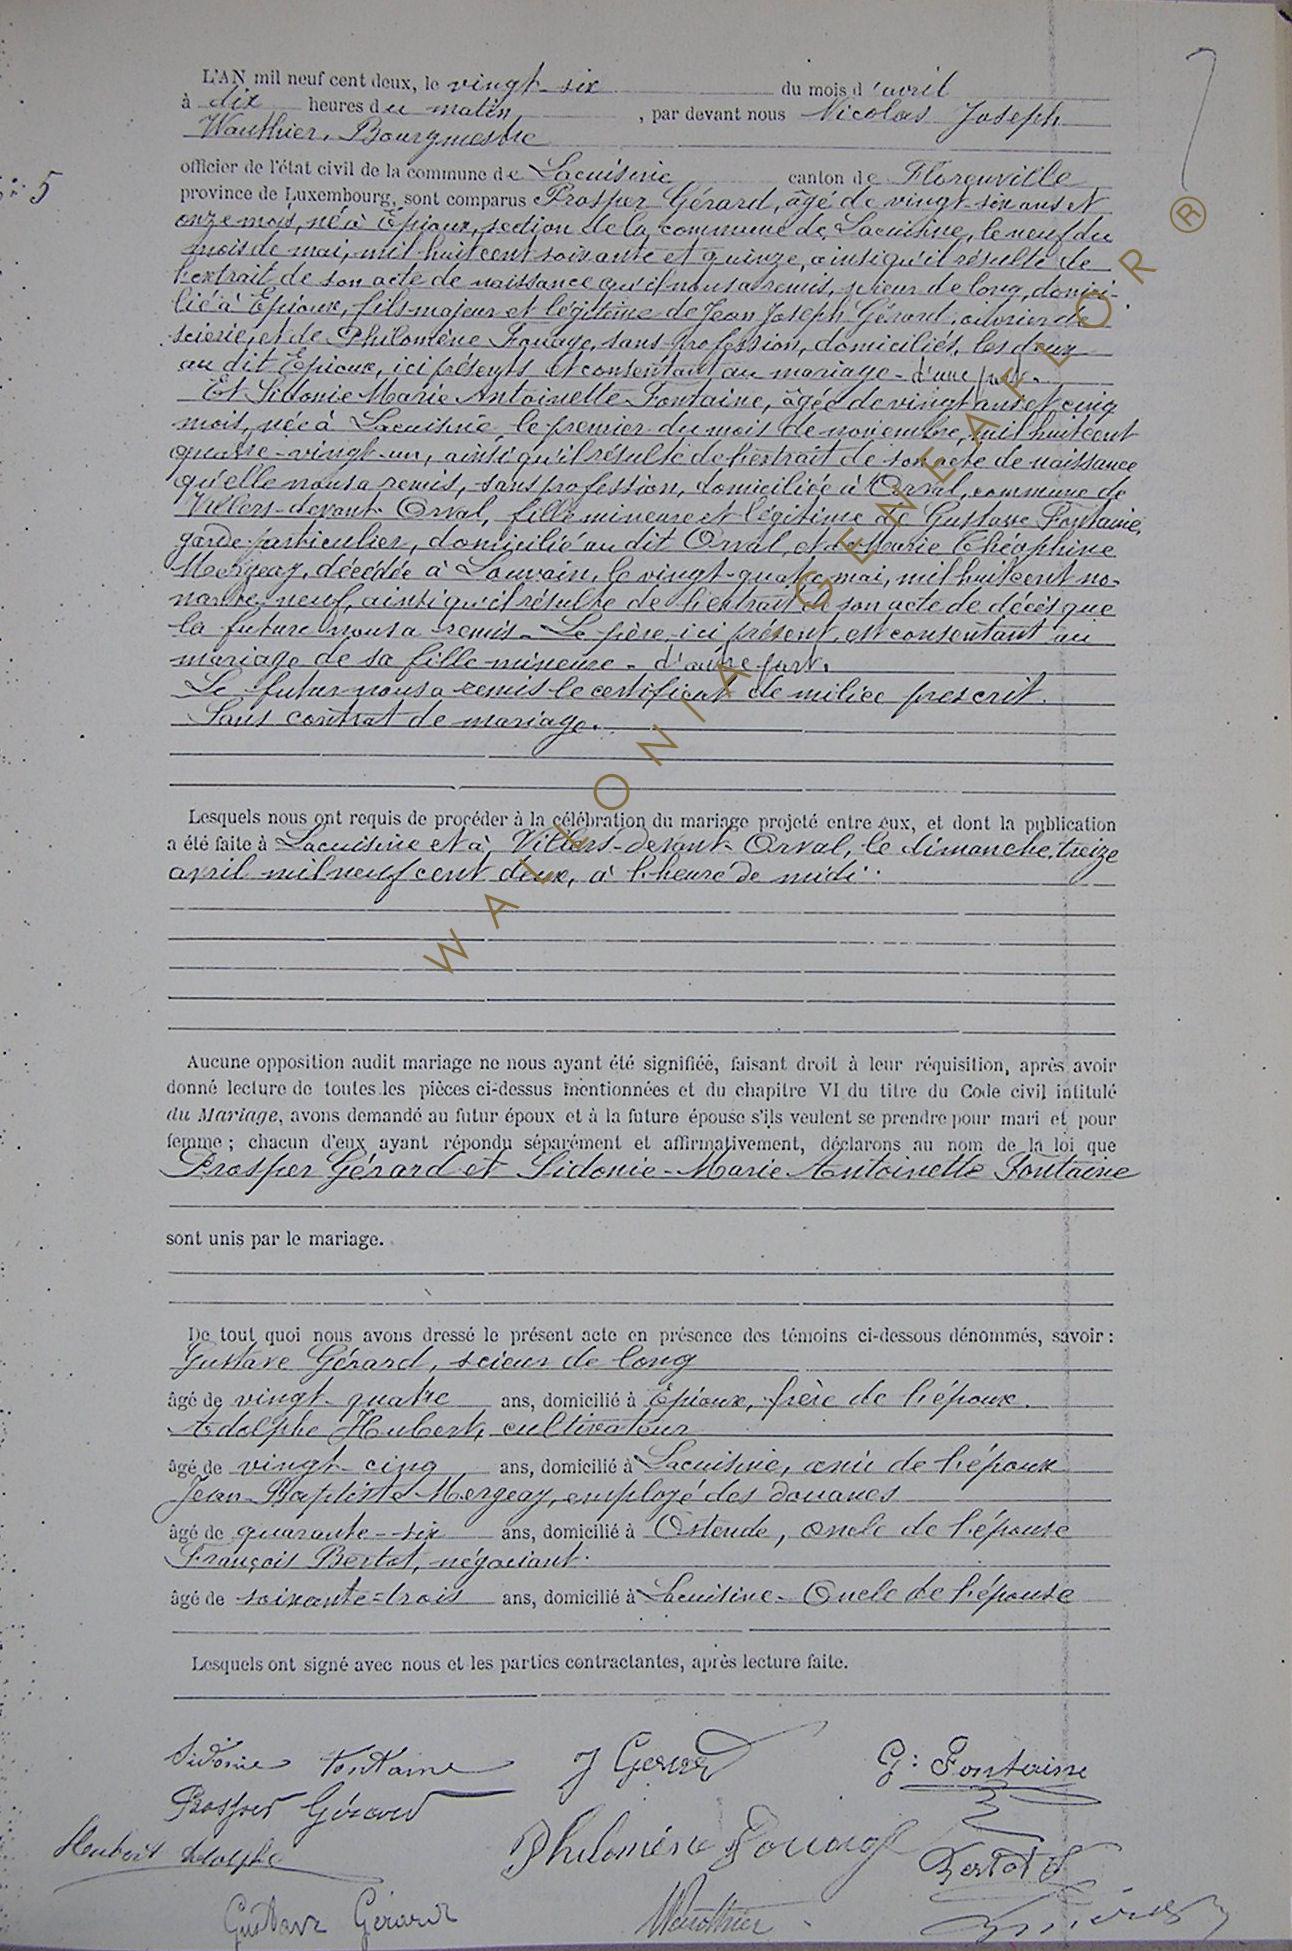 L'AN mil neuf cent deux, le vingt-six du mois d'avril
à dix heures du matin, par devant nous Nicolas Joseph
Wauthier, Bourgmestre
officier de l'état civil de la commune de Lacuisine canton de Florenville
N° 5
province de Luxembourg, sont comparus Prosper Gérard, âgé de vingt-six ans et
onze mois, né à Epioux, section de la commune de Lacuisine, le neuf du
mois de mai, mil huit cent soixante et quinze, ainsi qu'il résulte de
l'extrait de son acte de naissance qu'il nous a remis, scieur de long, domici-
lié à Epioux, fils majeur et légitime de Jean Joseph Gérard, ouvrier de
scierie, et de Philomène Fouage, sans profession, domiciliés, les deux
au dit Epioux, ici présents et consentant au mariage - d'une part.
Et Sidonie Marie Antoinette Fontaine, âgée de vingt ans et cinq
mois, née à Lacuisine, le premier du mois de novembre, mil huit cent
quatre-vingt-un, ainsi qu'il résulte de l'extrait de son acte de naissance
qu'elle nous a remis, sans profession, domiciliée à Orval, commune de
Villers-devant-Orval, fille mineure et légitime de Gustave Fontaine,
garde particulier, domicilié au dit Orval, et de Marie Théophine
Mergeay, décédée à Louvain, le vingt-quatre mai, mil huit cent no-
nante-neuf, ainsi qu'il résulte de l'extrait de son acte de décès que
la future nous a remis. Le père, ici présent, est consentant au
mariage de sa fille mineure - d'autre part.
Le futur nous a remis le certificat de milice prescrit.
Sans contrat de mariage.
Lesquels nous ont requis de procéder à la célébration du mariage projeté entre eux, et dont la publication
a été faite à Lacuisine et à Villers-devant-Orval, le dimanche, treize
avril mil neuf cent deux, à l'heure de midi.
Aucune opposition audit mariage ne nous ayant été signifiée, faisant droit à leur réquisition, après avoir
donné lecture de toutes les pièces ci-dessus mentionnées et du chapitre VI du titre du Code civil intitulé
du Mariage, avons demandé au futur époux et à la future épouse s'ils veulent se prendre pour mari et pour
femme ; chacun d'eux ayant répondu séparément et affirmativement, déclarons au nom de la loi que
Prosper Gérard et Sidonie-Marie Antoinette Fontaine
sont unis par le mariage.
De tout quoi nous avons dressé le présent acte en présence des témoins ci-dessous dénommés, savoir :
Gustave Gérard, scieur de long
âgé de vingt-quatre ans, domicilié à Epioux, frère de l'époux.
Adolphe Hubert, cultivateur
âgé de vingt-cinq ans, domicilié à Lacuisine, ami de l'époux
Jean-Baptiste Mergeay, employé des douanes
âgé de quarante-six ans, domicilié à Ostende, oncle de l'épouse
François Bertot, négociant.
âgé de soixante-trois ans, domicilié à Lacuisine - Oncle de l'épouse
Lesquels ont signé avec nous et les parties contractantes, après lecture faite.
Sidonie Fontaine J Gerard G. Fontaine
Prosper Gérard
Hubert Adolphe Philomène Fouage Bertot F
Gustave Gérard Wauthier
WALLONIA GENEAFLOR ®